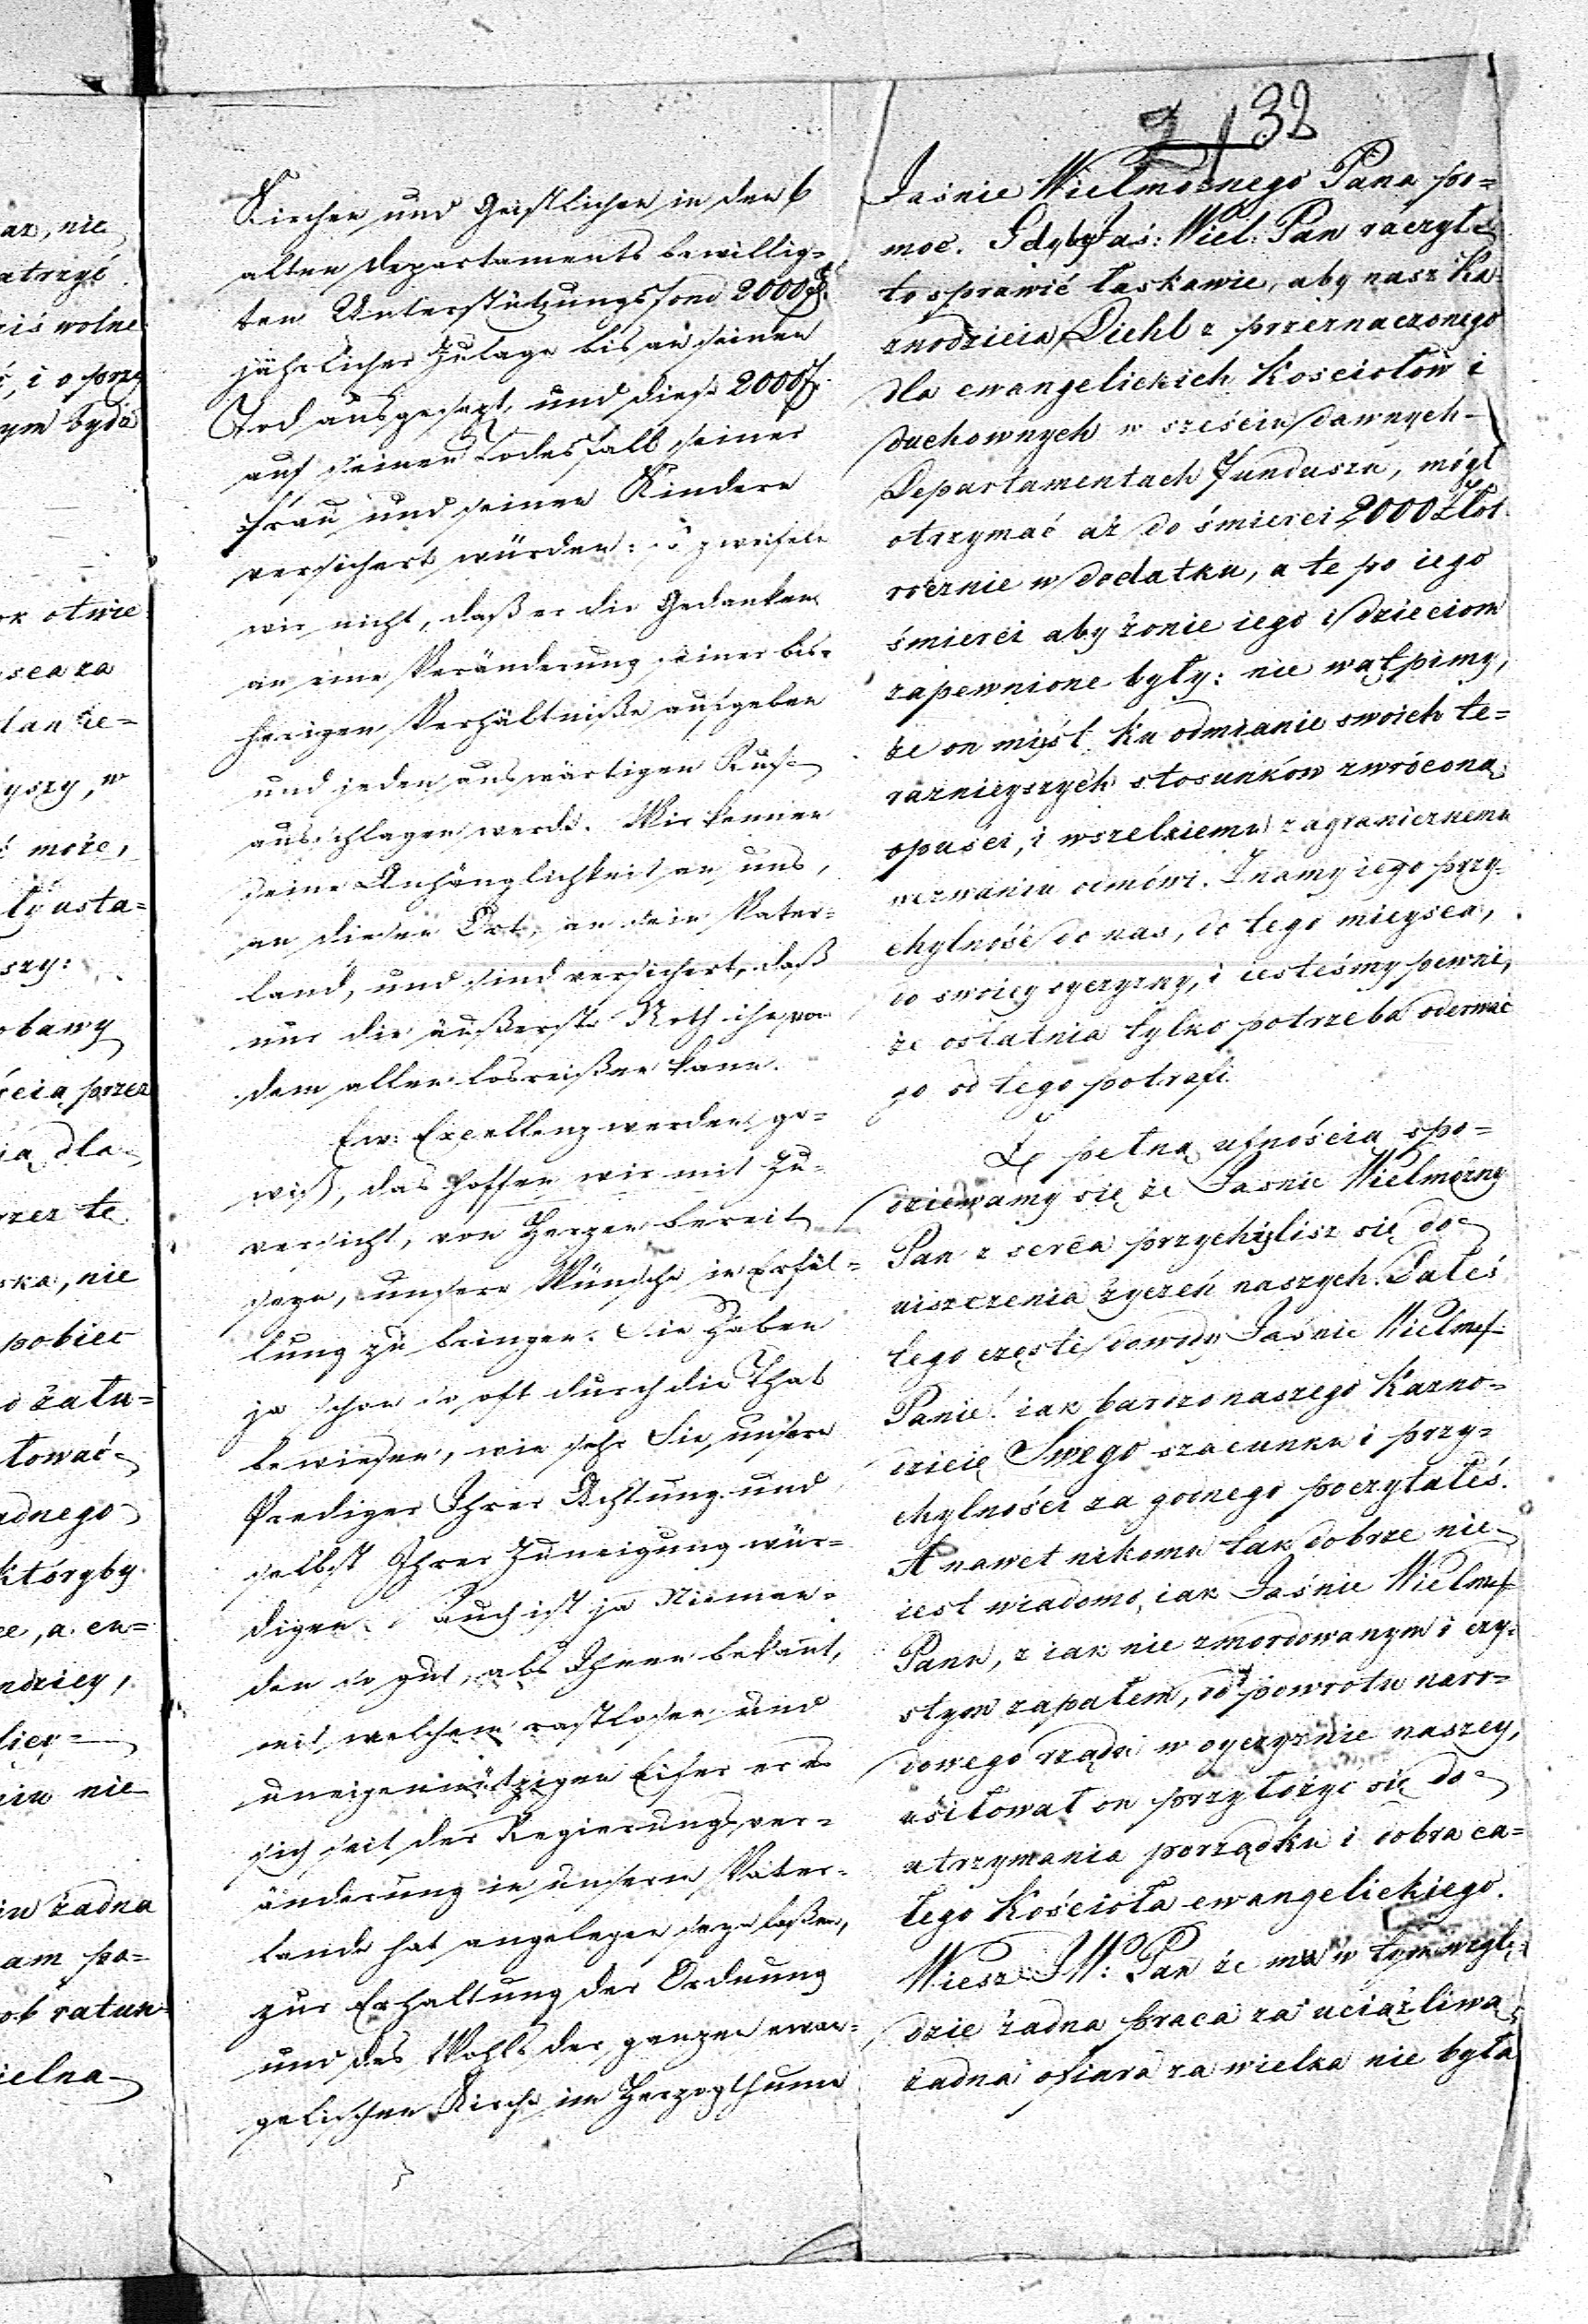 32
Kirchen und Geistlichen in den 6
alten Departaments bewillig=
ten Unterstützungsfond 2000 f.
jährlicher Zulage bis an seinen
Tod ausgesezt, und diese 2000 f.
auf seinen Todesfall seiner
Frau und seinen Kindern
versichert würden: so zweifeln
wir nicht, daß er die Gedanken
an eine Veränderung seiner bis=
herigen Verhältniße aufgeben
und jeden auswärtigen Ruf
ausschlagen werde. Wir kennen
seine Anhänglichkeit an uns,
an diesen Ort, an sein Vater=
land, und sind versichert, daß
nur die äußerste Noth ihn von
dem allen losreißen kann.
Ew: Excellenz werden ge=
wiß, das hoffen wir mit Zu=
versicht, von Herzen bereit
seyn, unsere Wünsche in Erfül=
lung zu bringen. Sie haben
ja schon so oft durch die That
bewiesen, wie sehr Sie unsern
Prediger Ihrer Achtung und
selbst Ihrer Zuneigung wür=
digen. Auch ist ja Nieman=
den so gut, als Ihnen bekannt,
mit welchem rastlosen und
uneigennützigen Eifer er es
sich seit der Regierungsver=
änderung in unserm Vater=
lande hat angelegen seyn laßen,
zur Erhaltung der Ordnung
und des Wohls der ganzen evan=
gelischen Kirche im Herzogthume
Jaśnie Wielmożnego Pana po=
moc. Gdyby Jaś: Wiel: Pan raczyłeś
to sprawić łaskawie, aby nasz Ka=
znodzieia Diehl z przeznaczonego
dla ewangelickich Kosciołów i
duchownych w sześciu dawnych
Departamentach Funduszu, mógł
otrzymać aż do śmierci 2000 Złot.
rocznie w dodatku, a te po iego
śmierci aby żonie iego i dzieciom
zapewnione były: nie wątpimy,
że on myśl ku odmianie swoich te=
raznieyszych stosunków zwróconą
opuści, i wszelkiemu zagranicznemu
wezwaniu odmówi. Znamy iego przy=
chylność do nas, do tego mieysca,
do swoiey oyczyzny, i iesteśmy pewni,
że ostatnia tylko potrzeba oderwać
go od tego potrafi.
Z pełną ufnością spo=
dziewamy się że Jasnie Wielmożny
Pan z serca przychylisz się do
uiszczenia życzeń naszych. Dałeś
tego częste dowody Jaśnie Wielm:
Panie! iak bardzo naszego Kazno=
dzieię Swego szacunku i przy=
chylności za godnego poczytałeś.
A nawet nikomu tak dobrze nie
iest wiadomo, iak Jaśnie Wielm:
Panu, z iak nie zmordowanym i czy=
stym zapałem, od powrotu naro=
dowego rządu w oyczyznie naszey,
usiłował on przyłożyć się do
utrzymania porządku i dobra ca=
łego Kościoła ewangelickiego.
Wiesz JW: Pan że mu w tym wzglę=
dzie żadna praca za uciążliwą,
żadna ofiara za wielka nie była